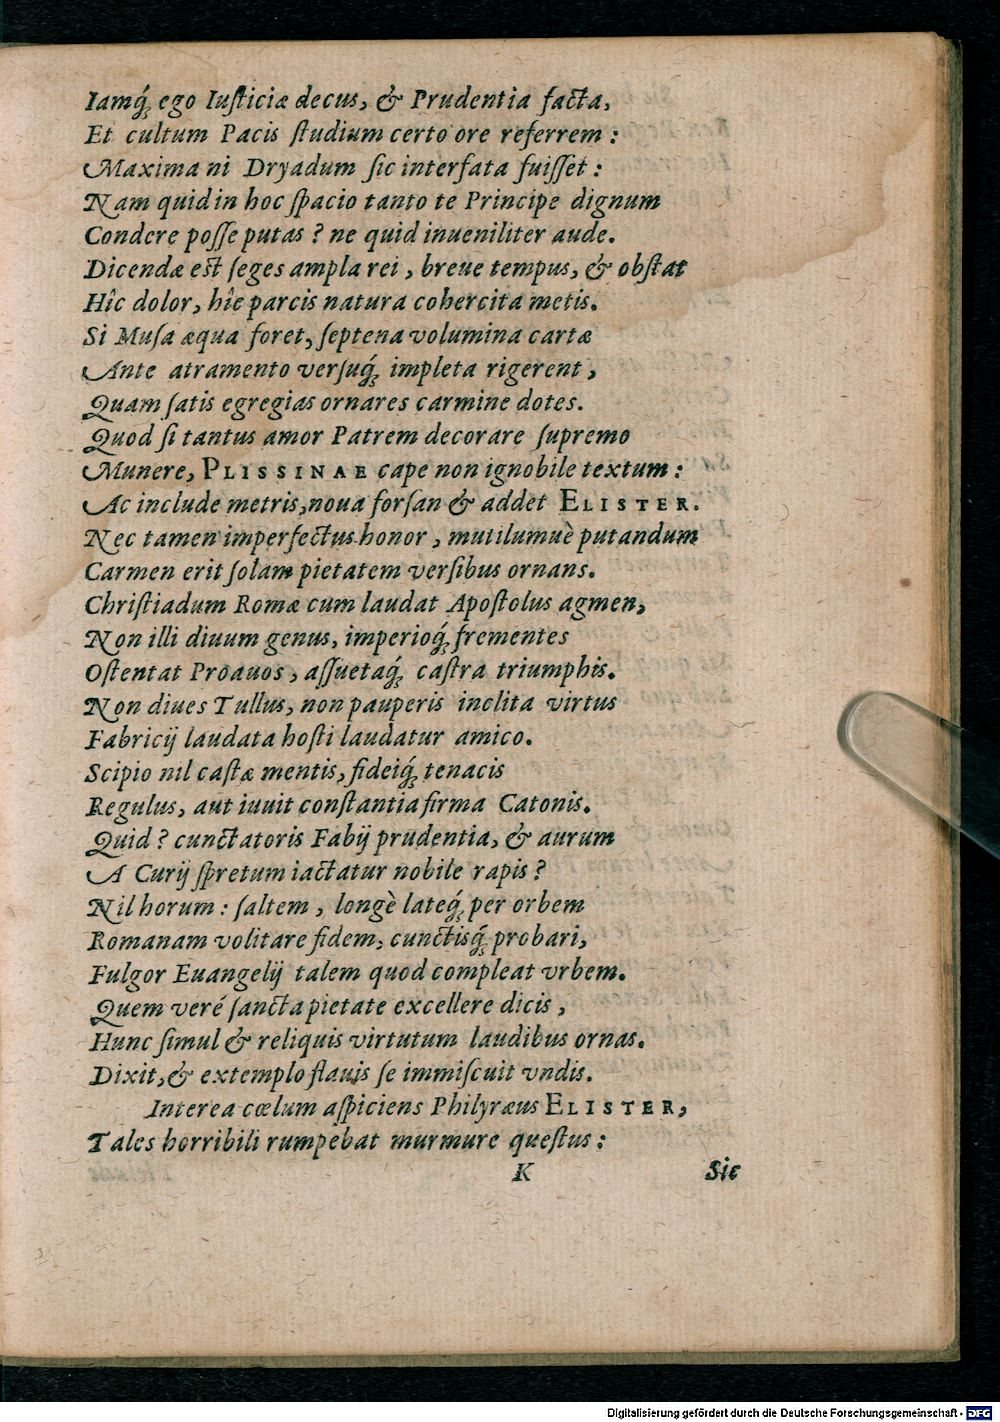 Iamq́; ego Iuſticiæ decus, & Prudentia facta,
Et cultum Pacis ſtudium certo ore referrem :
Maxima ni Dryadum ſic interfata fuiſſet :
Nam quid in hoc ſpacio tanto te Principe dignum
Condere poſſe putas ? ne quid inueniliter aude.
Dicendæ est ſeges ampla rei , breue tempus, & obſtat
Hîc dolor, hîc parcis natura cohercita metis.
Si Muſa æqua foret, ſeptena volumina cartæ
Ante atramento verſuq́; impleta rigerent ,
Quam ſatis egregias ornares carmine dotes.
Quod ſi tantus amor Patrem decorare ſupremo
Munere, PLISSINAE cape non ignobile textum :
Ac include metris, noua forſan & addet ELISTER.
Nec tamen imperfectus honor , mutilumuè putandum
Carmen erit ſolam pietatem verſibus ornans.
Chriſtiadum Romæ cum laudat Apoſtolus agmen,
Non illi diuum genus, imperioq́; frementes
Oſtentat Proauos , aſſuetaq́; caſtra triumphis.
Non diues Tullus, non pauperis inclita virtus
Fabricij laudata hoſti laudatur amico.
Scipio nil caſtæ mentis, fideiq́; tenacis
Regulus, aut iuuit conſtantia firma Catonis.
Quid ? cunctatoris Fabij prudentia, & aurum
A Curij ſpretum iactatur nobile rapis ?
Nil horum : ſaltem , longè lateq́; per orbem
Romanam volitare fidem, cunctisq́; probari,
Fulgor Euangelij talem quod compleat vrbem.
Quem veré ſancta pietate excellere dicis ,
Hunc ſimul & reliquis virtutum laudibus ornas.
Dixit, & extemplo flauis ſe immiſcuit vndis.
Interea cœlum aſpiciens Philyræus ELISTER,
Tales horribili rumpebat murmure queſtus :
K Sic
Digitalisierung gefördert durch die Deutsche Forschungsgemeinschaft - DFG